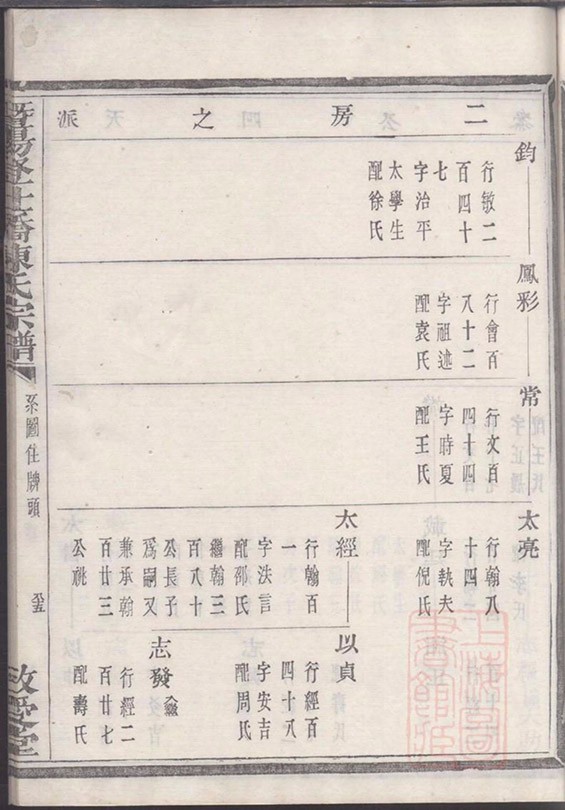 二房之派
鈞
行敏二
百四十
七
字治平
太學生
配徐氏
鳳彩
行會百
八十二
字祖述
配袁氏
常
行文百
四十四
字時夏
配王氏
太亮
行翰八
十四
字執夫
配倪氏
太經
行翰百
一
字浃言
配邵氏
繼翰三
百八十
公長子
爲嗣又
兼承翰
百廿三
公祧
以貞
行經百
四十八
字安吉
配周氏
志發
行經二
百廿七
配壽氏
陳氏宗譜
系圖住牌頭
敘受堂